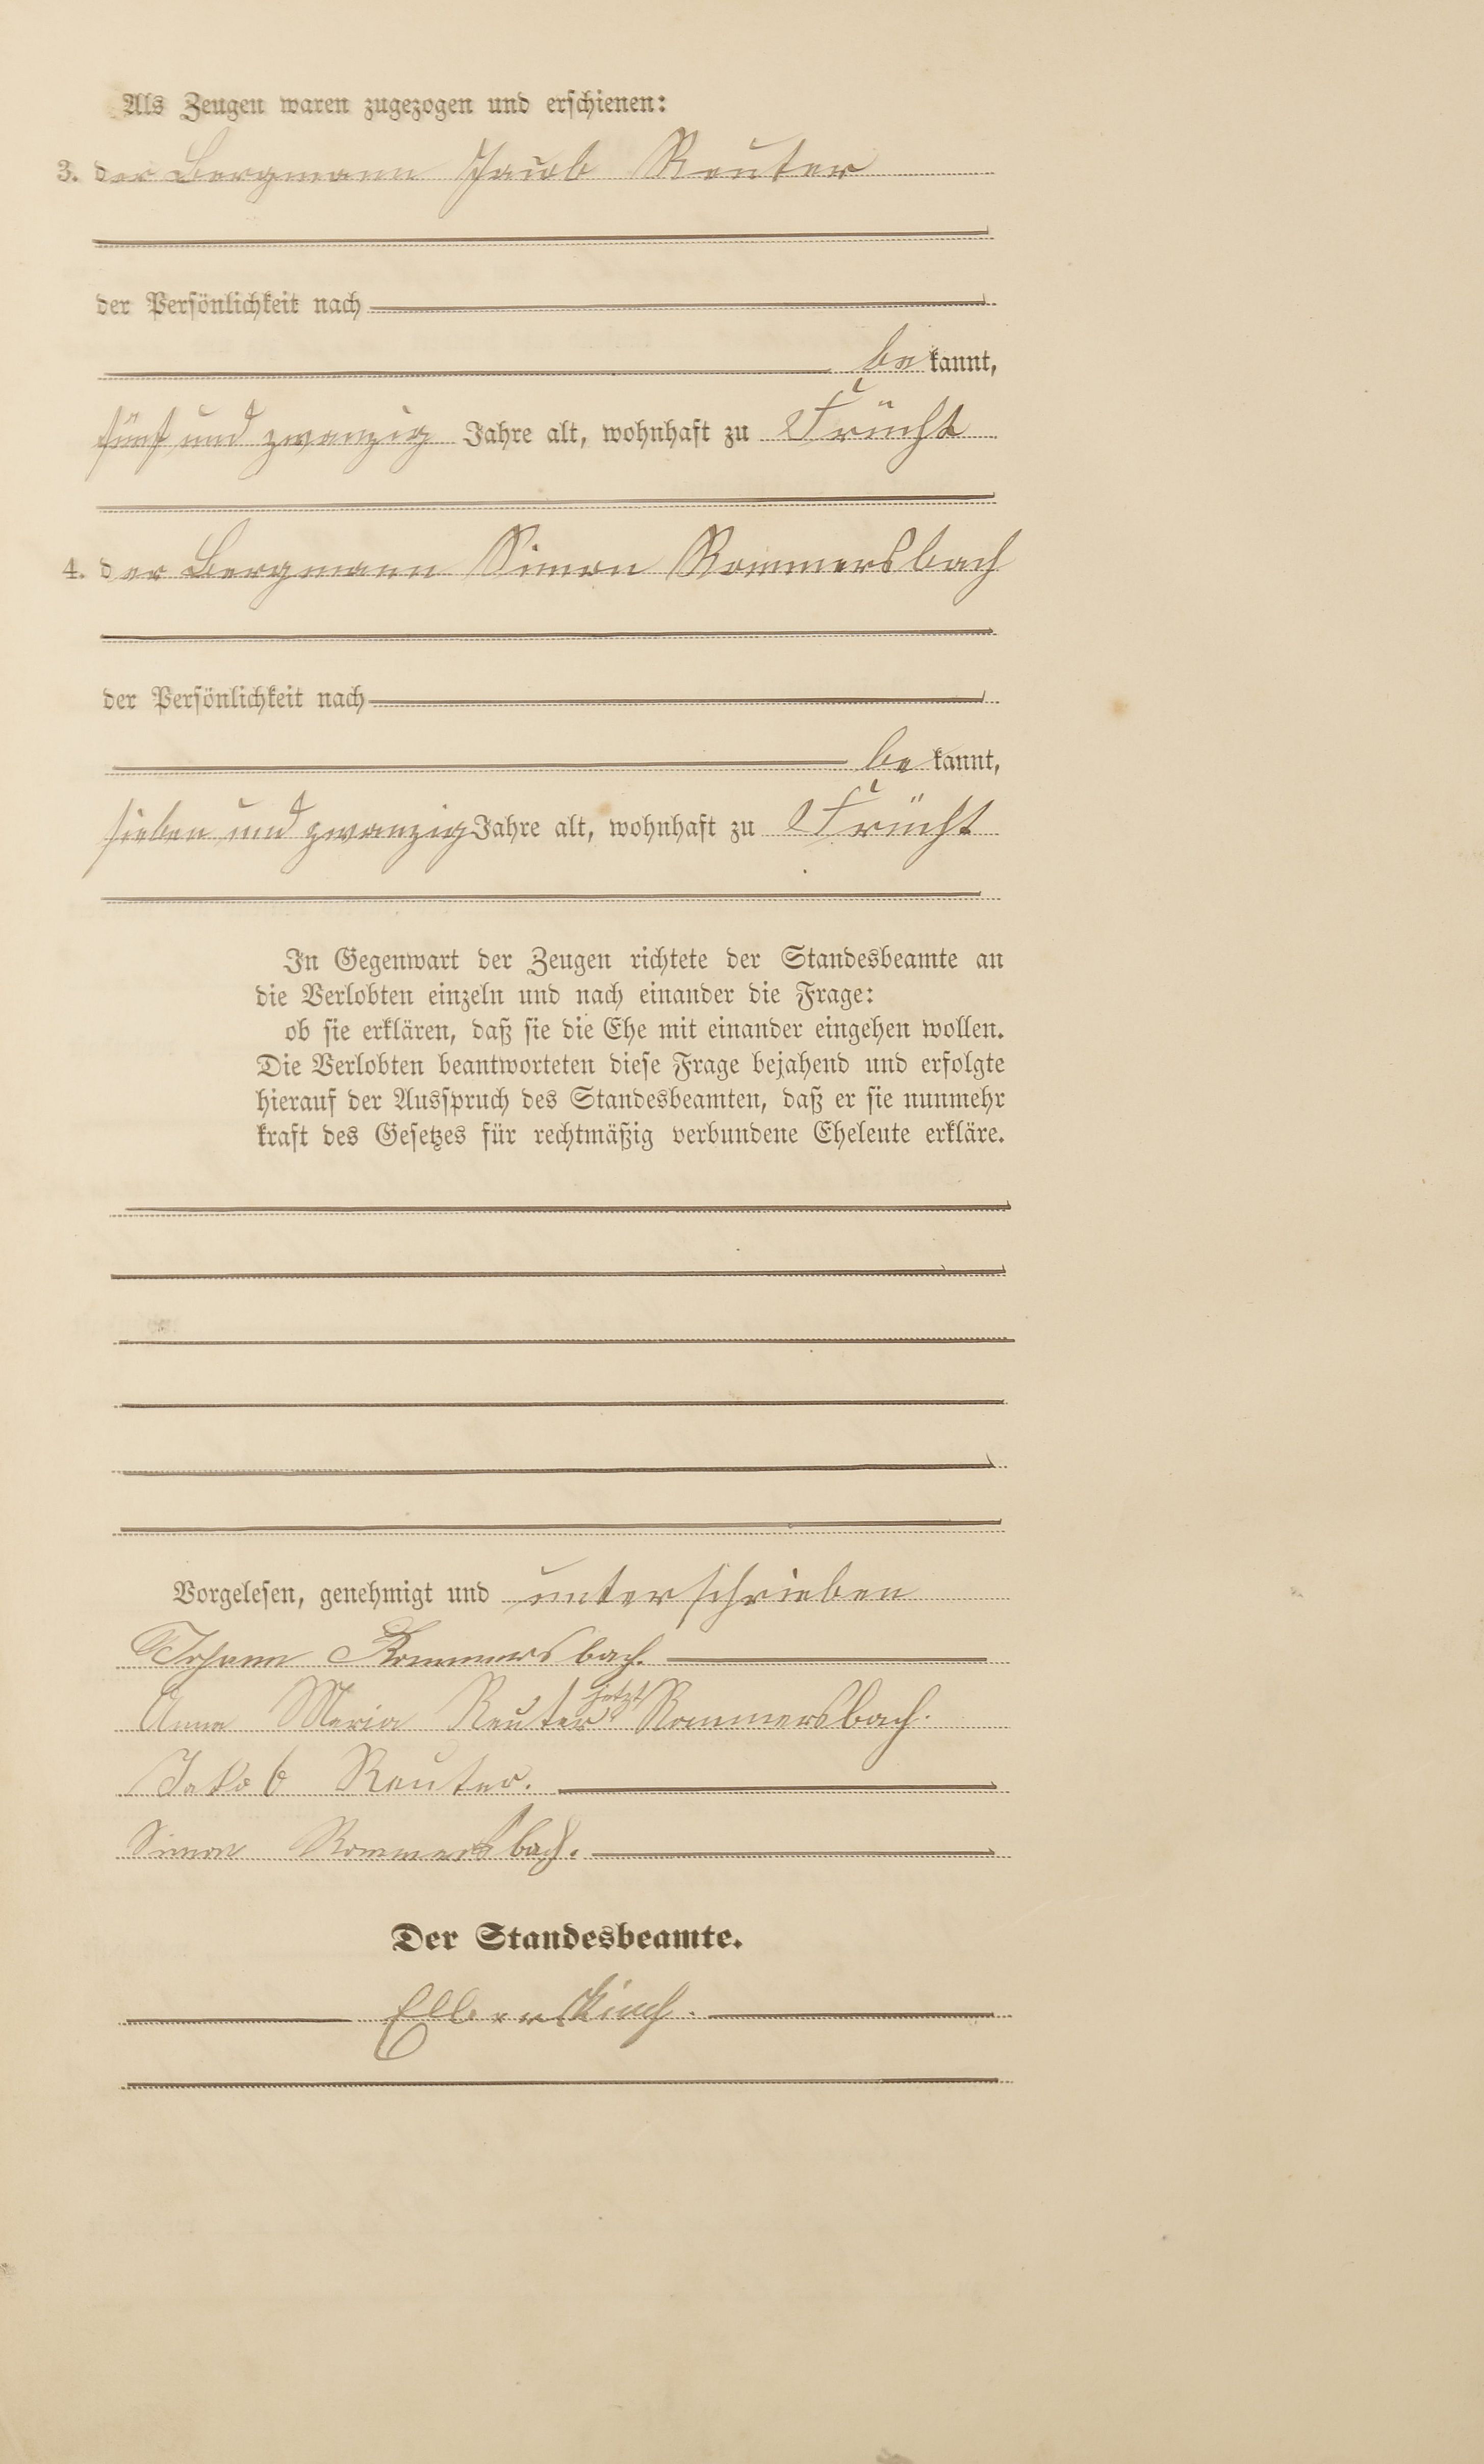 Als Zeugen waren zugezogen und erschienen:
3. der Bergmann Jacob Reuter
der Persönlichkeit nach
be kannt,
fünf und zwanzig Jahre alt, wohnhaft zu Frücht
4. der Bergmann Simon Rommersbach
der Persönlichkeit nach
be kannt,
sieben und zwanzig Jahre alt, wohnhaft zu Frücht
In Gegenwart der Zeugen richtete der Standesbeamte an
die Verlobten einzeln und nach einander die Frage:
ob sie erklären, daß sie die Ehe mit einander eingehen wollen.
Die Verlobten beantworteten diese Frage bejahend und erfolgte
hierauf der Ausspruch des Standesbeamten, daß er sie nunmehr
kraft des Gesetzes für rechtmäßig verbundene Eheleute erkläre.
Vorgelesen, genehmigt und unterschrieben
Johann Rommersbach.
Anna Maria Reuter jetzt Rommersbach.
Jakob Reuter.
Simon Rommersbach.
Der Standesbeamte.